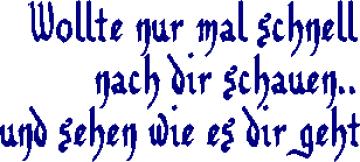 Wollte nur mal schnell
nach dir schauen..
und sehen wie es dir geht